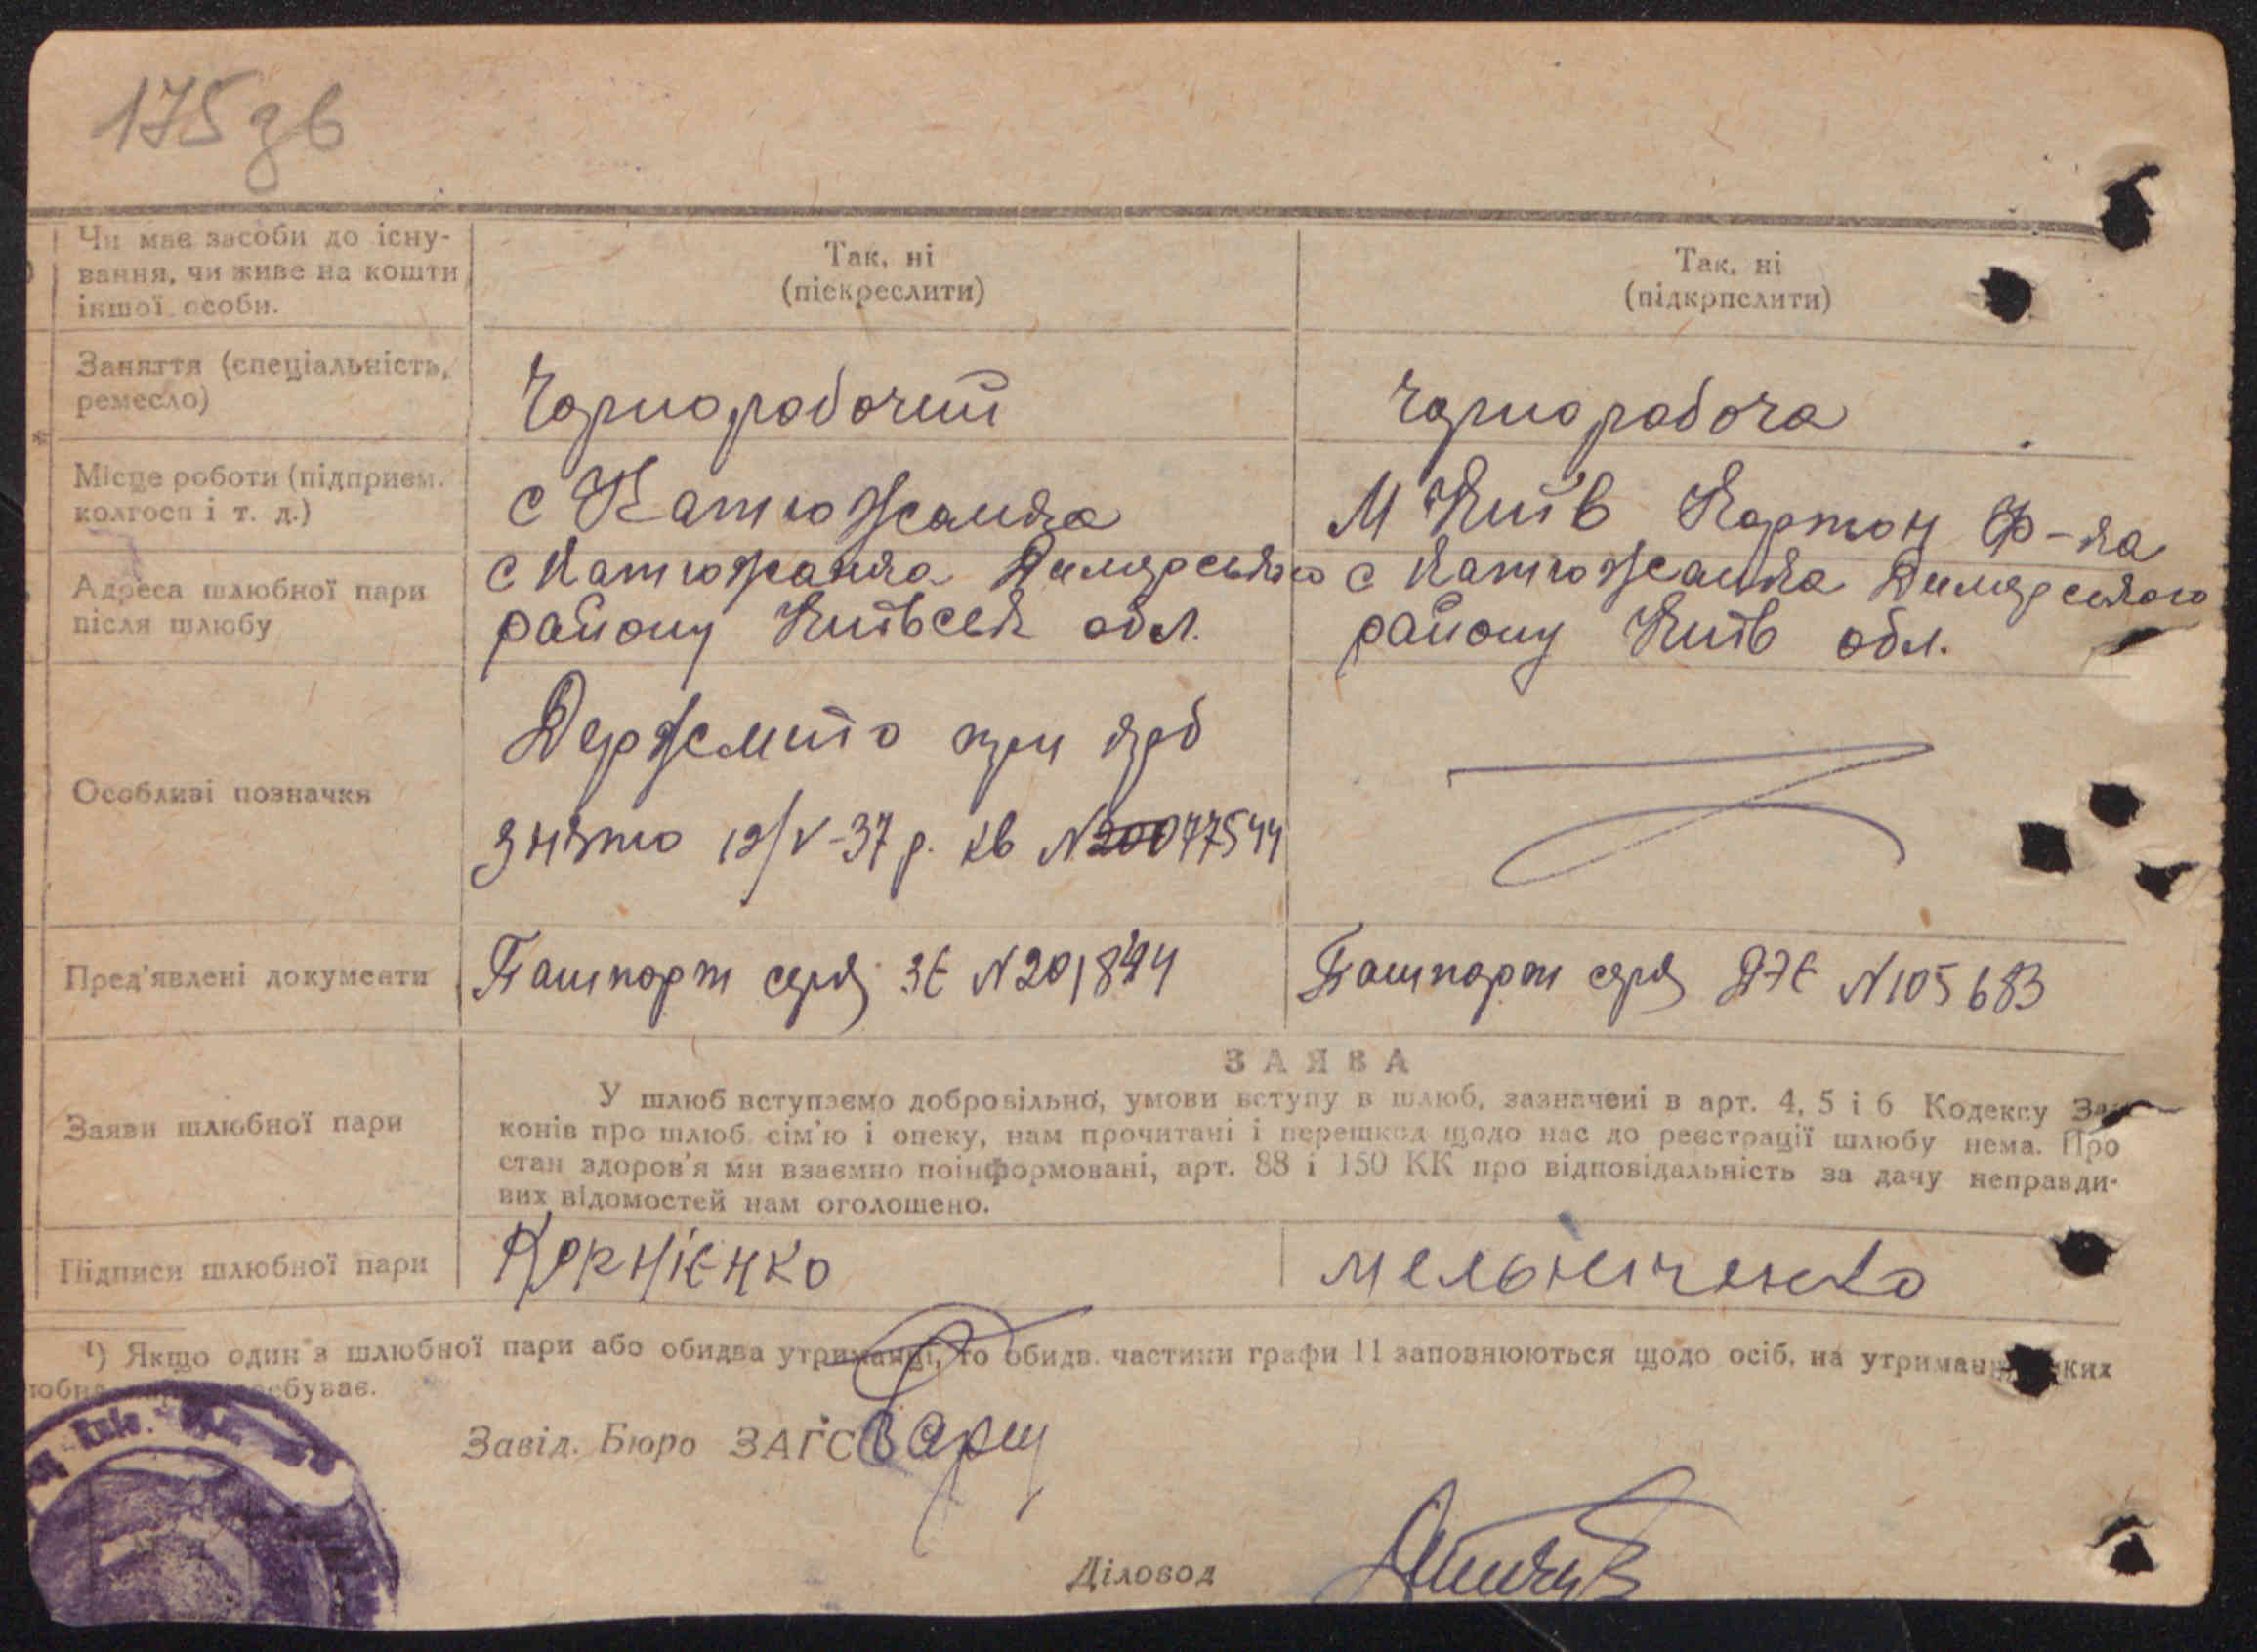 175 зв
Чи має засоби до існу-
вання, чи живе на кошти
іншої особи.
Так, ні
(піекреслити)
Так, ні
(підкрпслити)
Заняття (спеціальність,
ремесло)
Чорноробочий
Чорноробоча
Місце роботи (підприєм.
колгосп і т. д.)
с Катюжанка
М Київ Картон ф-ка
Адреса шлюбної пари
після шлюбу
с Катюжанка Димерського
району Київськ обл.
с Катюжанка Димерського
району Київ обл.
Особливі позначкя
Держмито при
знято 12/V-37 р. кв N 20077544
Пред'явлені документи
Пашпорт серія ЗЄ N 201844
Пашпорт серія N 105683
Заяви шлюбної пари
ЗАЯВА
У шлюб вступаємо добровільно, умови вступу в шлюб, зазначені в арт. 4, 5 і 6 Кодексу За-
конів про шлюб сім'ю і опеку, нам прочитані і перешкод щодо нас до реєстрації шлюбу нема. Про
стан здоров'я ми взаємно поінформовані, арт. 88 і 150 КК про відповідальність за дачу неправди-
вих відомостей нам оголошено.
Підписи шлюбної пари
Корнієнко
Мельниченко
¹) Якщо один з шлюбної пари або обидва утриманці, то обидв. частини графи 11 заповнюються щодо осіб, на утриманні яких
Завід. Бюро ЗАГС
Діловод